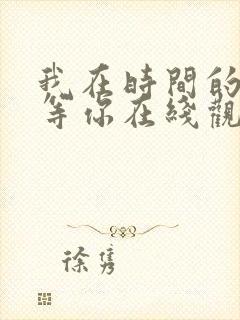 我在時間的
等你在綫觀
徐雋